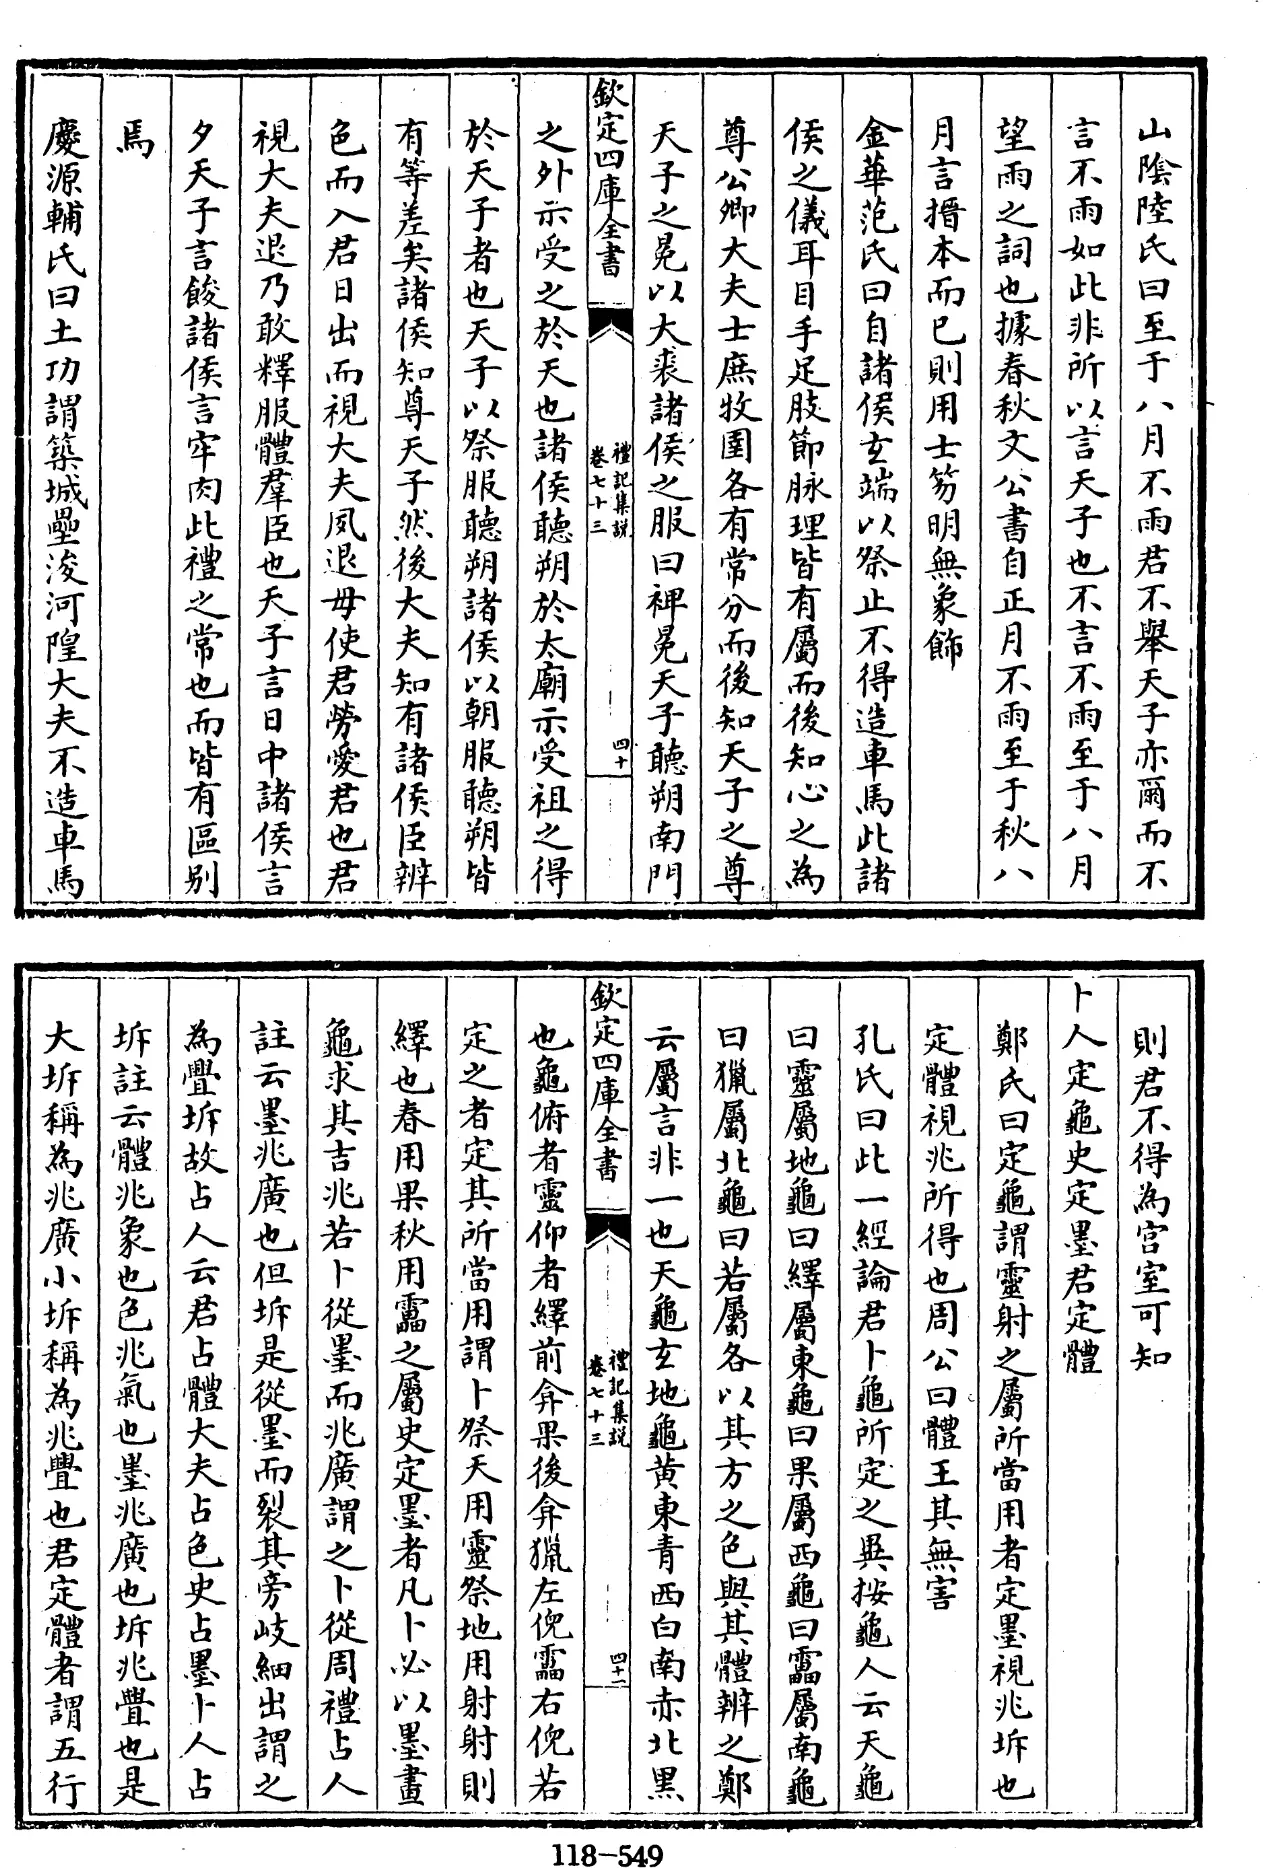 山隂陸氏曰至于八月不雨君不舉天子亦爾而不
言不雨如此非所以言天子也不言不雨至于八月
望雨之詞也據春秋文公書自正月不雨至于秋八
月言搢本而已則用士笏明無象飾
金華范氏曰自諸侯玄端以祭止不得造車馬此諸
侯之儀耳目手足肢節脉理皆有屬而後知心之為
尊公卿大夫士庶牧圉各有常分而後知天子之尊
天子之冕以大裘諸侯之服曰裨冕天子聽朔南門
欽定四庫全書
禮記集説
卷七十三
四十
之外示受之於天也諸侯聽朔於太廟示受祖之得
於天子者也天子以祭服聽朔諸侯以朝服聽朔皆
有等差矣諸侯知尊天子然後大夫知有諸侯臣辨
色而入君日出而視大夫夙退毋使君勞愛君也君
視大夫退乃敢釋服體羣臣也天子言日中諸侯言
夕天子言餕諸侯言牢肉此禮之常也而皆有區别
焉
慶源輔氏曰土功謂築城壘浚河隍大夫不造車馬
則君不得為宫室可知
卜人定龜史定墨君定體
鄭氏曰定龜謂靈射之屬所當用者定墨視兆坼也
定體視兆所得也周公曰體王其無害
孔氏曰此一經論君卜龜所定之異按龜人云天龜
曰靈屬地龜曰繹屬東龜曰果屬西龜曰靁屬南龜
曰獵屬北龜曰若屬各以其方之色與其體辨之鄭
云屬言非一也天龜玄地龜黄東青西白南赤北黑
欽定四庫全書
禮記集説
卷七十三
四十一
也龜俯者靈仰者繹前弇果後弇獵左倪靁右倪若
定之者定其所當用謂卜祭天用靈祭地用射射則
繹也春用果秋用靁之屬史定墨者凡卜必以墨畫
龜求其吉兆若卜從墨而兆廣謂之卜從周禮占人
註云墨兆廣也但坼是從墨而裂其旁岐細出謂之
為璺坼故占人云君占體大夫占色史占墨卜人占
坼註云體兆象也色兆氣也墨兆廣也坼兆璺也是
大坼稱為兆廣小坼稱為兆璺也君定體者謂五行
118-549